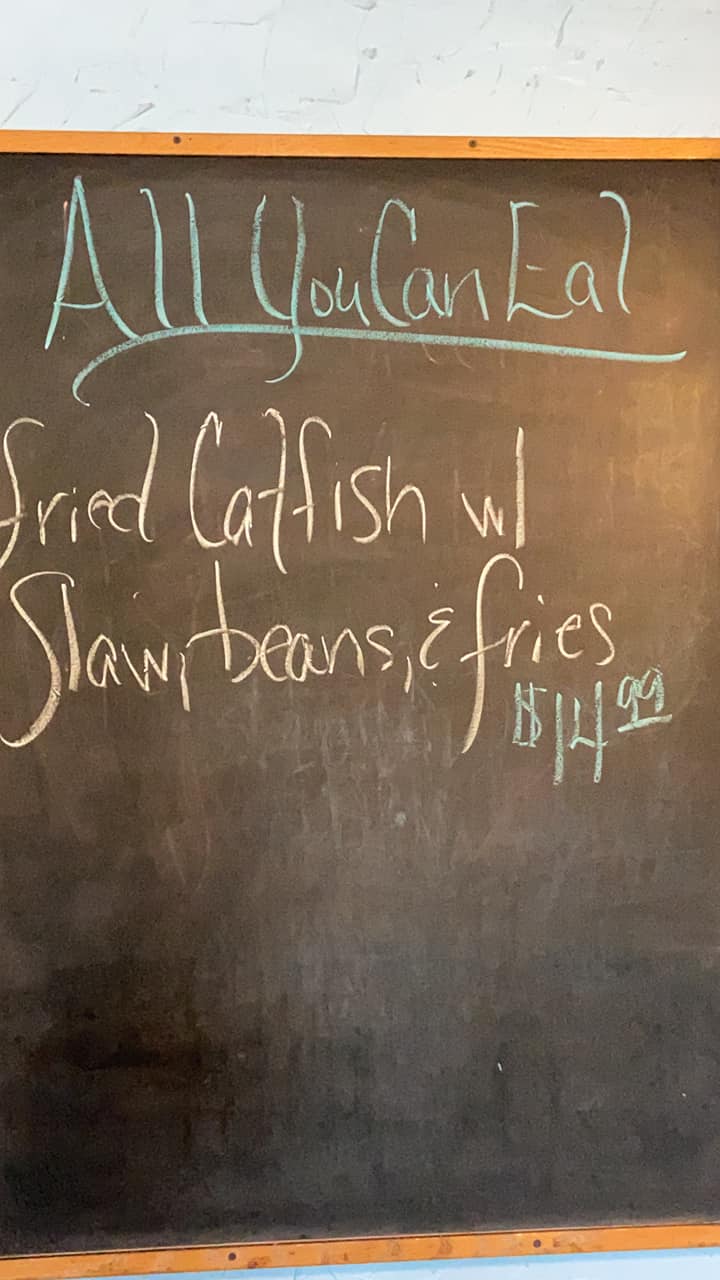 All You Can Eat
fried Catfish w/
Slaw, beans, & fries
$14.99